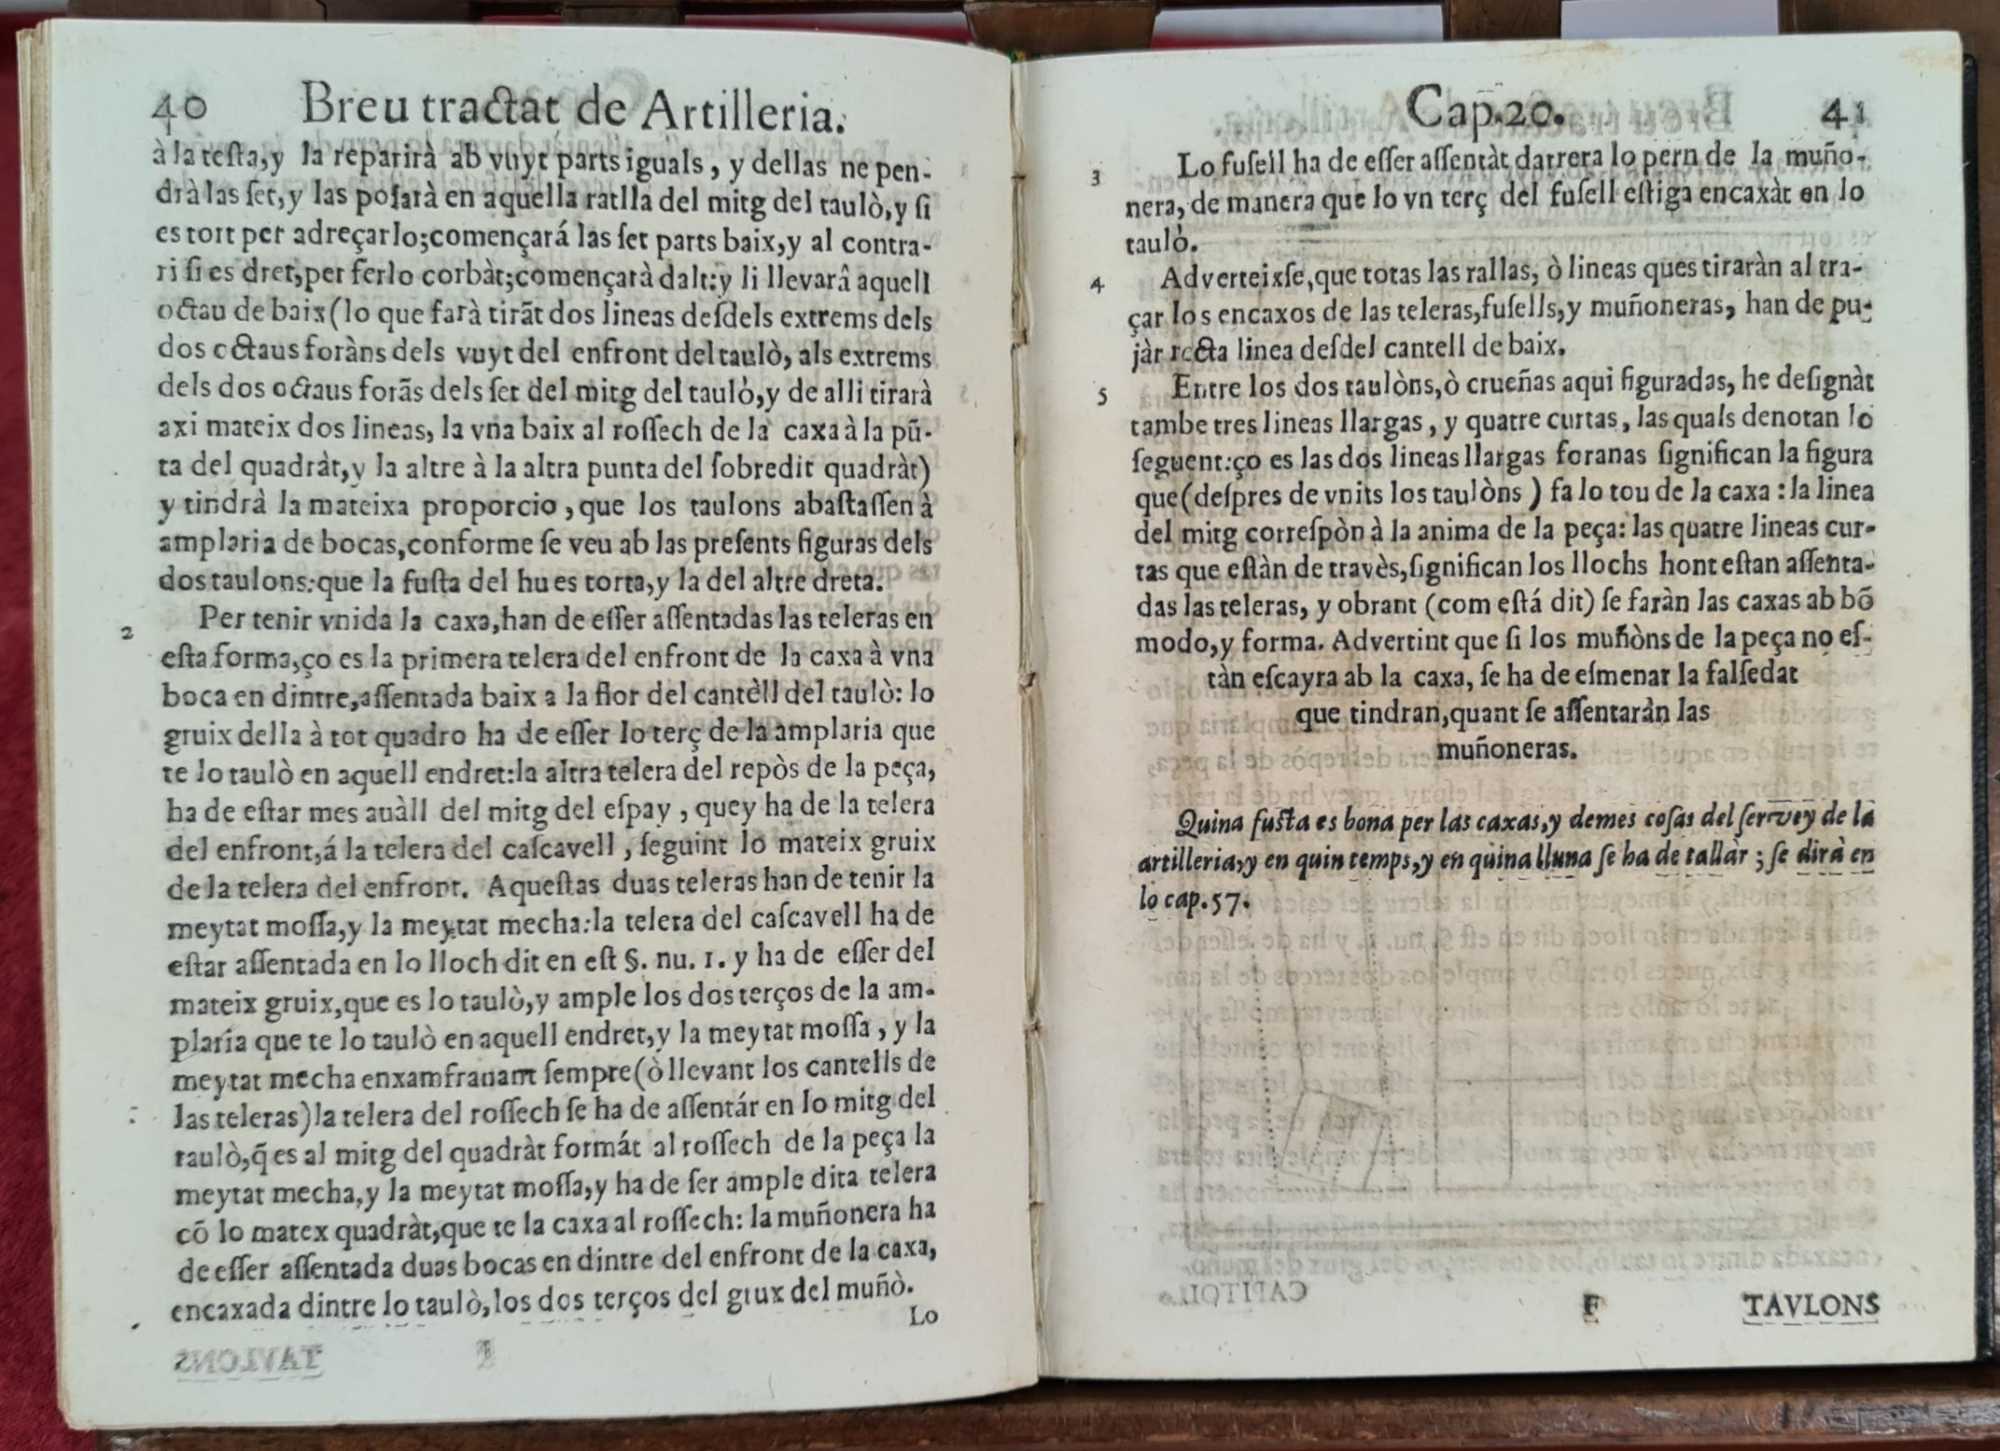 40 Breu tractat de Artilleria.
à la teſta,y la repartirà ab vuyt parts iguals, y dellas ne pen-
drà las ſet,y las poſarà en aquella ratlla del mitg del taulò,y ſi
es tort per adreçarlo;començará las ſet parts baix,y al contra-
ri ſi es dret,per ferlo corbàt;començarà dalt:y li llevarâ aquell
octau de baix(lo que farà tirãt dos lineas deſdels extrems dels
dos octaus foràns dels vuyt del enfront del taulò, als extrems
dels dos octaus forãs dels ſet del mitg del taulò,y de alli tirarà
axi mateix dos lineas, la vna baix al roſſech de la caxa à la pũ-
ta del quadràt,y la altre à la altra punta del ſobredit quadràt)
y tindrà la mateixa proporcio, que los taulons abaſtaſſen à
amplaria de bocas,conforme ſe veu ab las preſents figuras dels
dos taulons:que la fuſta del hu es torta,y la del altre dreta.
2 Per tenir vnida la caxa,han de eſſer aſſentadas las teleras en
eſta forma,ço es la primera telera del enfront de la caxa à vna
boca en dintre,aſſentada baix a la flor del cantèll del taulò: lo
gruix della à tot quadro ha de eſſer lo terç de la amplaria que
te lo taulò en aquell endret:la altra telera del repòs de la peça,
ha de eſtar mes auàll del mitg del eſpay, quey ha de la telera
del enfront,á la telera del caſcavell, ſeguint lo mateix gruix
de la telera del enfront. Aqueſtas duas teleras han de tenir la
meytat moſſa,y la meytat mecha:la telera del caſcavell ha de
eſtar aſſentada en lo lloch dit en eſt §. nu. 1. y ha de eſſer del
mateix gruix,que es lo taulò,y ample los dos terços de la am-
plaria que te lo taulò en aquell endret,y la meytat moſſa, y la
meytat mecha enxamfranant ſempre(ò llevant los cantells de
las teleras)la telera del roſſech ſe ha de aſſentár en lo mitg del
taulò,q̃ es al mitg del quadràt formát al roſſech de la peça la
meytat mecha,y la meytat moſſa,y ha de ſer ample dita telera
cõ lo matex quadràt,que te la caxa al roſſech: la muñonera ha
de eſſer aſſentada duas bocas en dintre del enfront de la caxa,
encaxada dintre lo taulò,los dos terços del giux del muñò.
Lo
Cap.20. 41
3 Lo fuſell ha de eſſer aſſentàt darrera lo pern de la muño-
nera, de manera que lo vn terç del fuſell eſtiga encaxàt en lo
taulò.
4 Adverteixſe,que totas las rallas, ò lineas ques tiraràn al tra-
çar los encaxos de las teleras,fuſells,y muñoneras, han de pu-
jàr recta linea deſdel cantell de baix.
5 Entre los dos taulòns,ò crueñas aqui figuradas, he deſignàt
tambe tres lineas llargas, y quatre curtas, las quals denotan lo
ſeguent:ço es las dos lineas llargas foranas ſignifican la figura
que(deſpres de vnits los taulòns) fa lo tou de la caxa: la linea
del mitg correſpòn à la anima de la peça: las quatre lineas cur-
tas que eſtàn de travès,ſignifican los llochs hont eſtan aſſenta-
das las teleras, y obrant (com eſtá dit) ſe faràn las caxas ab bõ
modo,y forma. Advertint que ſi los muñòns de la peça no eſ-
tàn eſcayra ab la caxa, ſe ha de eſmenar la falſedat
que tindran,quant ſe aſſentaràn las
muñoneras.
Quina fuſta es bona per las caxas,y demes coſas del ſervey de la
artilleria,y en quin temps,y en quina lluna ſe ha de tallàr; ſe dirà en
lo cap.57.
F TAVLONS